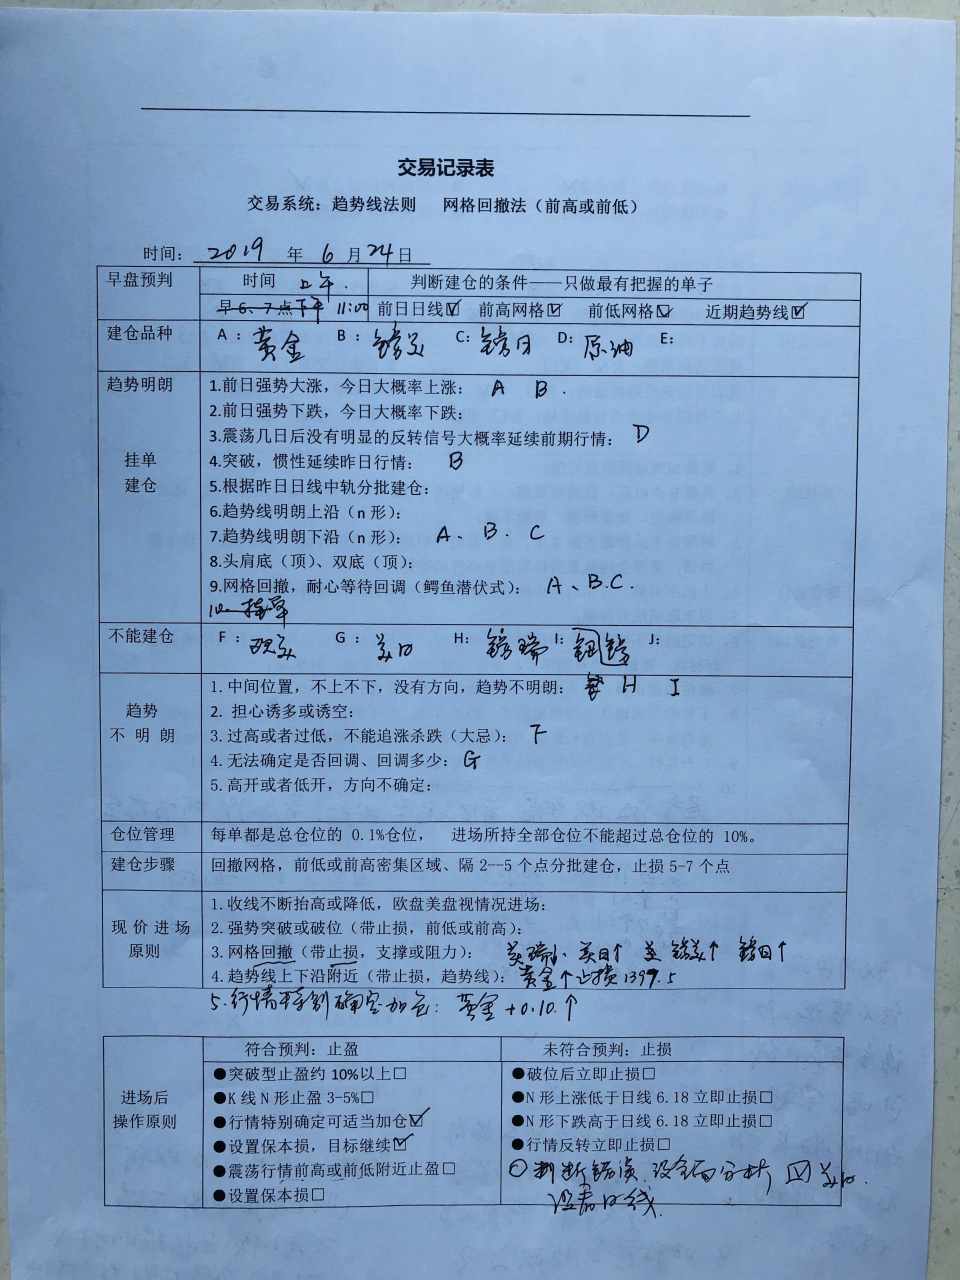 交易记录表
交易系统：趋势线法则 网格回撤法（前高或前低）
时间： 2019 年 6 月 24 日
早盘预判 时间 上午. 判断建仓的条件——只做最有把握的单子
早 6、7 点下午 11:00 前日日线☑ 前高网格☑ 前低网格☑ 近期趋势线☑
建仓品种 A： 黄金 B： 镑美 C： 镑日 D： 原油 E：
趋势明朗 1.前日强势大涨，今日大概率上涨： A B .
2.前日强势下跌，今日大概率下跌：
3.震荡几日后没有明显的反转信号大概率延续前期行情： D
挂单 4.突破，惯性延续昨日行情： B
建仓 5.根据昨日日线中轨分批建仓：
6.趋势线明朗上沿（n 形）：
7.趋势线明朗下沿（n 形）： A、B. C
8.头肩底（顶）、双底（顶）：
9.网格回撤，耐心等待回调（鳄鱼潜伏式）： A、B.C.
不能建仓 F： 欧美 G： 美日 H： 镑瑞 I： 钮镑 J：
1. 中间位置，不上不下，没有方向，趋势不明朗： H I
趋势 2. 担心诱多或诱空：
不 明 朗 3. 过高或者过低，不能追涨杀跌（大忌）： F
4. 无法确定是否回调、回调多少： G
5. 高开或者低开，方向不确定：
仓位管理 每单都是总仓位的 0.1%仓位， 进场所持全部仓位不能超过总仓位的 10%。
建仓步骤 回撤网格，前低或前高密集区域、隔 2--5 个点分批建仓，止损 5-7 个点
1. 收线不断抬高或降低，欧盘美盘视情况进场：
现 价 进 场 2. 强势突破或破位（带止损，前低或前高）：
原则 3. 网格回撤（带止损，支撑或阻力）： 美瑞 美日↑ 镑美↑ 镑日↑
4. 趋势线上下沿附近（带止损，趋势线）： 黄金↑止损1399.5
5.行情特别确定加仓： 黄金 +0.10.↑
符合预判：止盈 未符合预判：止损
●突破型止盈约 10%以上□ ●破位后立即止损□
进场后 ●K 线 N 形止盈 3-5%□ ●N 形上涨低于日线 6.18 立即止损□
操作原则 ●行情特别确定可适当加仓☑ ●N 形下跌高于日线 6.18 立即止损□
●设置保本损，目标继续☑ ●行情反转立即止损□
●震荡行情前高或前低附近止盈□ 判断错误 没全面分析 ☑ 美日.
●设置保本损□ 日线.